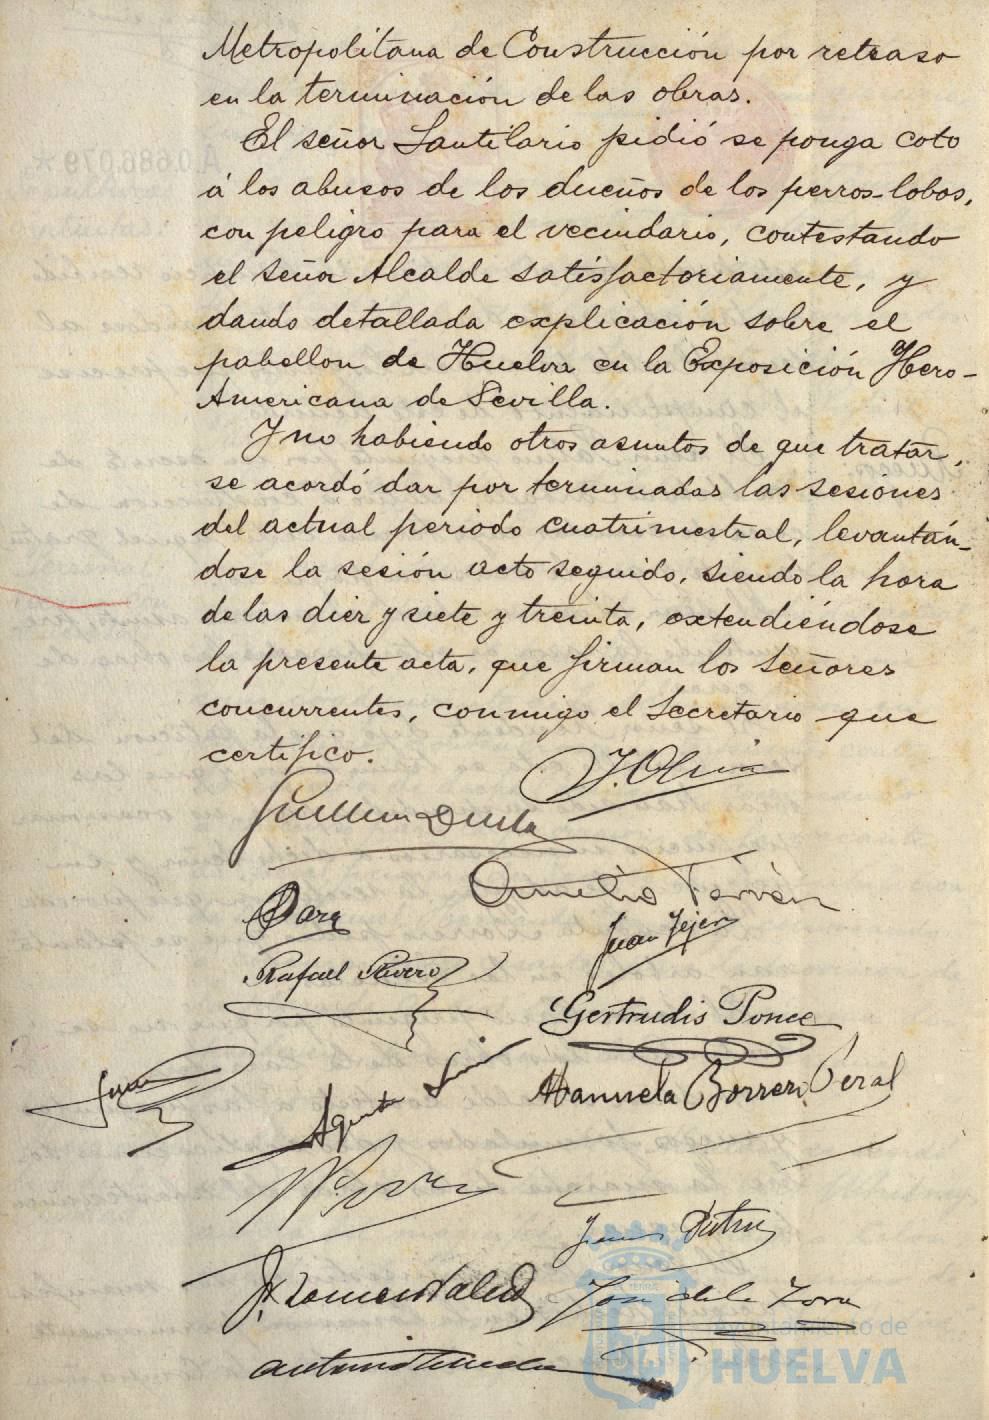 Metropolitana de Construcción por retraso
en la terminación de las obras.
El señor Santilario pidió se ponga coto
á los abusos de los dueños de los perros-lobos,
con peligro para el vecindario, contestando
el señor Alcalde satisfactoriamente, y
dando detallada explicación sobre el
pabellon de Huelva en la Exposición Ibero-
Americana de Sevilla.
Y no habiendo otros asuntos de que tratar,
se acordó dar por terminadas las sesiones
del actual periodo cuatrimestral, levantán-
dose la sesión acto seguido, siendo la hora
de las diez y siete y treinta, extendiéndose
la presente acta, que firman los señores
concurrentes, conmigo el Secretario que
certifico.
A0.686.079*
Aurelio Terrón
Juan
Rafael Rivero
Gertrudis Ponce
Manuela Borrero Peral
José de la
Ayuntamiento de
HUELVA